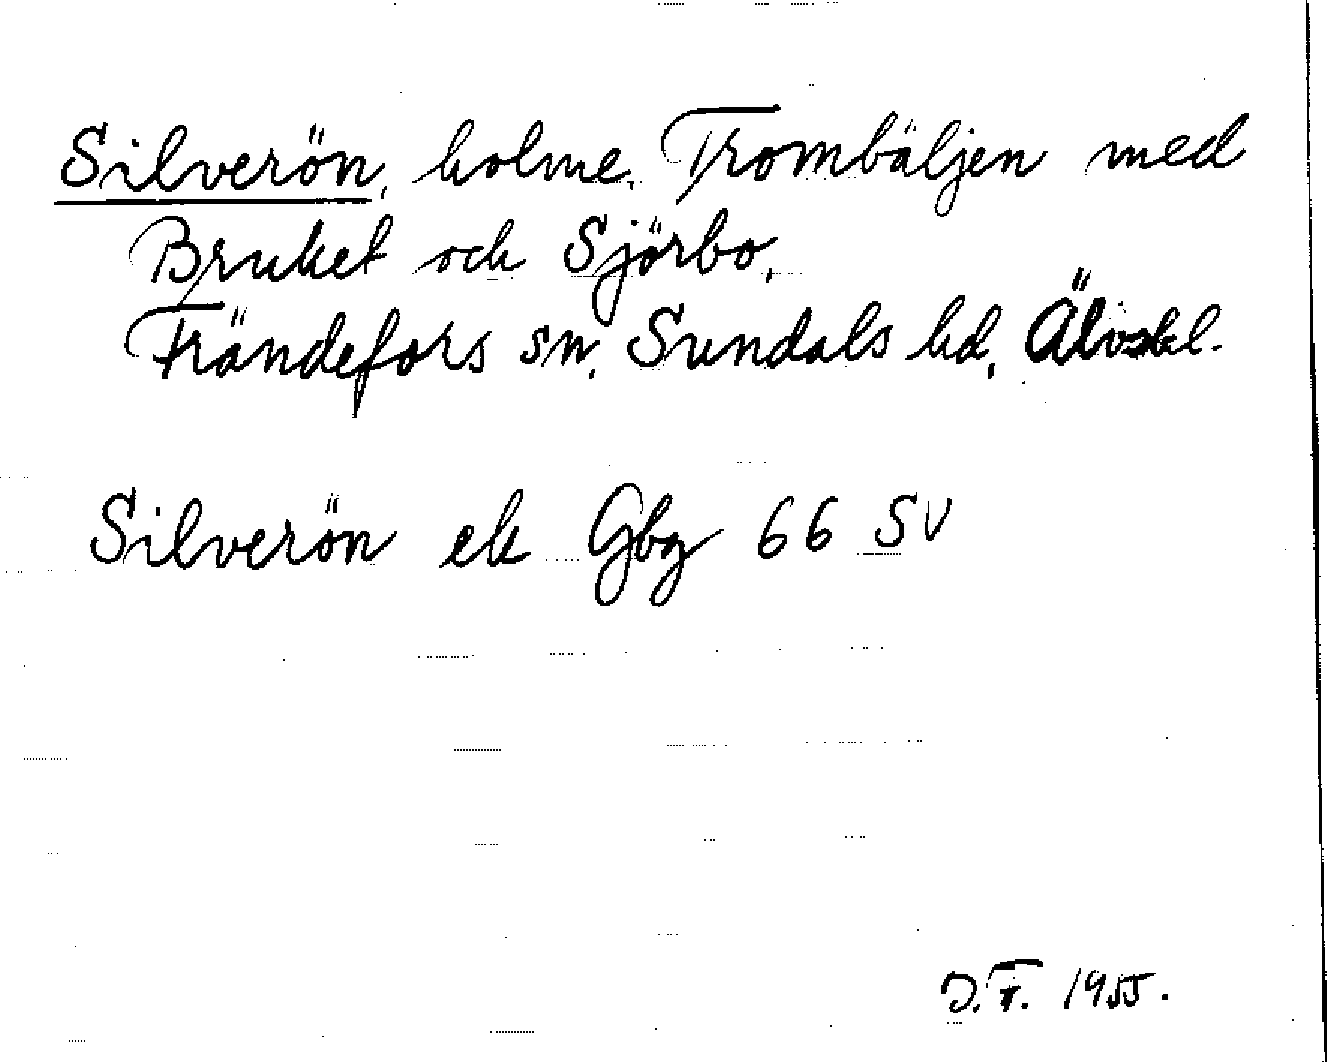 Silverön, holme, Trombäljen med
Bruket och Sjörbo,
Frändefors sn, Sundals hd, Älvsbl.
Silverön ek Gbg 66 SV
D.F. 1955.